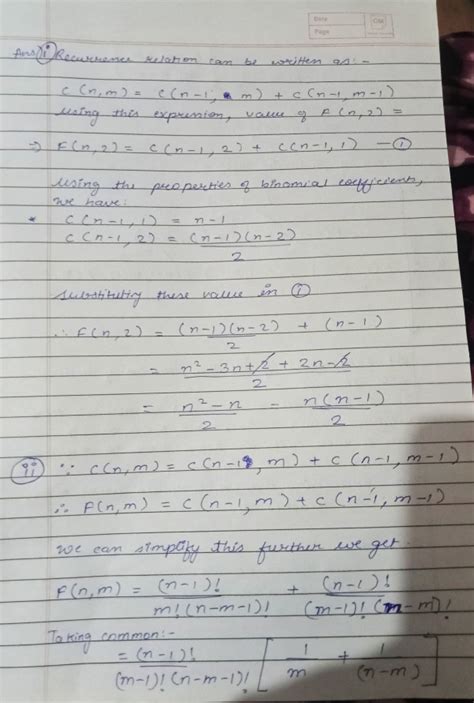 Date
Page
Ans) i Recurrence relation can be written as:-
C(n,m) = C(n-1, m) + C(n-1, m-1)
using this expression, value of F(n,2) =
⇒ F(n,2) = C(n-1, 2) + C(n-1, 1) — ①
using the properties of binomial coefficient,
we have:
* C(n-1, 1) = n-1
C(n-1, 2) = (n-1)(n-2)/2
substituting these value in ①
∴ F(n,2) = (n-1)(n-2)/2 + (n-1)
= n² - 3n + 2 + 2n - 2/2
= n² - n/2 = n(n-1)/2
ii ∵ C(n,m) = C(n-1, m) + C(n-1, m-1)
∴ F(n,m) = C(n-1, m) + C(n-1, m-1)
we can simplify this further we get.
F(n,m) = (n-1)!/m!(n-m-1)! + (n-1)!/(m-1)!(n-m)!
Taking common:-
= (n-1)!/(m-1)!(n-m-1)! [1/m + 1/(n-m)]